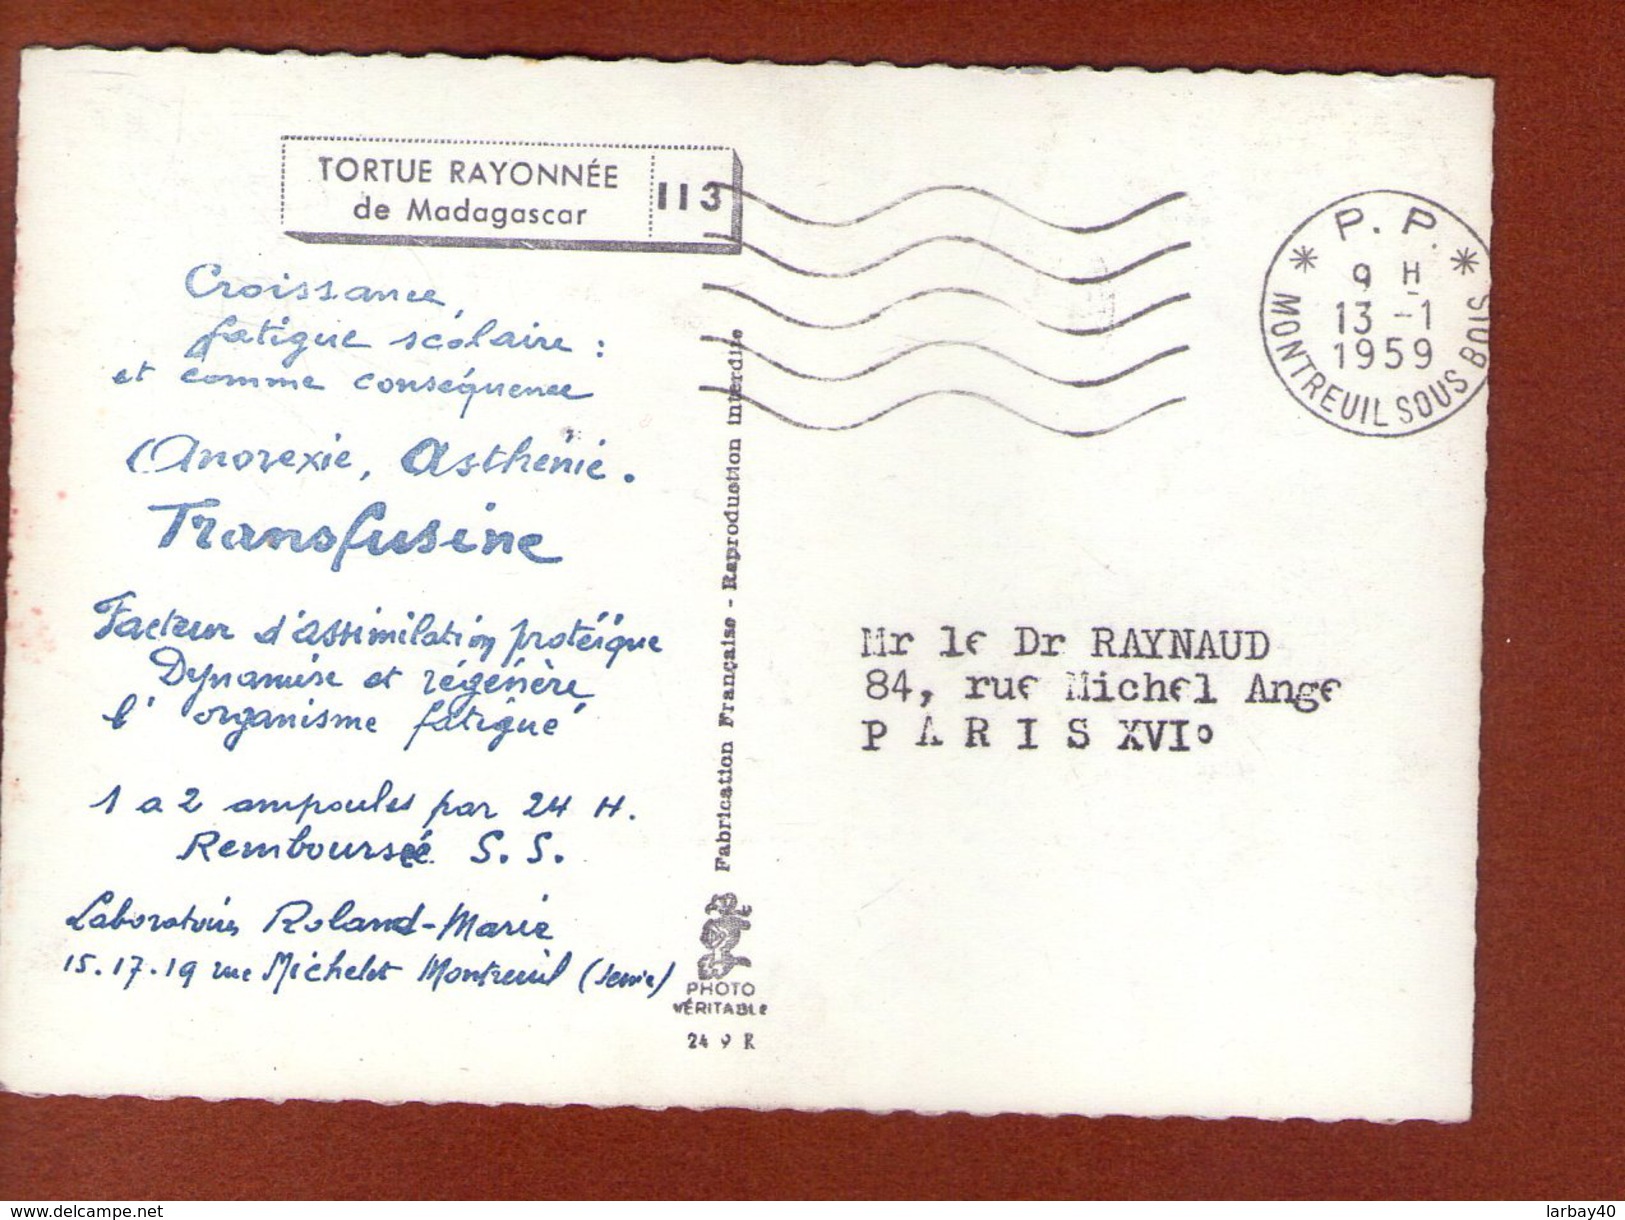 TORTUE RAYONNÉE
de Madagascar
113
P. P.
9 H
13 -1
1959
* MONTREUIL SOUS BOIS *
Croissance,
fatigue scolaire :
et comme conséquence
Anorexie, Asthénie.
Transfusine
Facteur d'assimilation protéique
Dynamise et régénère
l'organisme fatigué
1 a 2 ampoules par 24 H.
Remboursée S. S.
Laboratoires Roland-Marie
15.17.19 rue Michelet Montreuil (Seine)
Fabrication Française - Reproduction interdite
PHOTO
VÉRITABLE
24 9 R
Mr le Dr RAYNAUD
84, rue Michel Ange
P A R I S XVI°
www.delcampe.net
larbay40